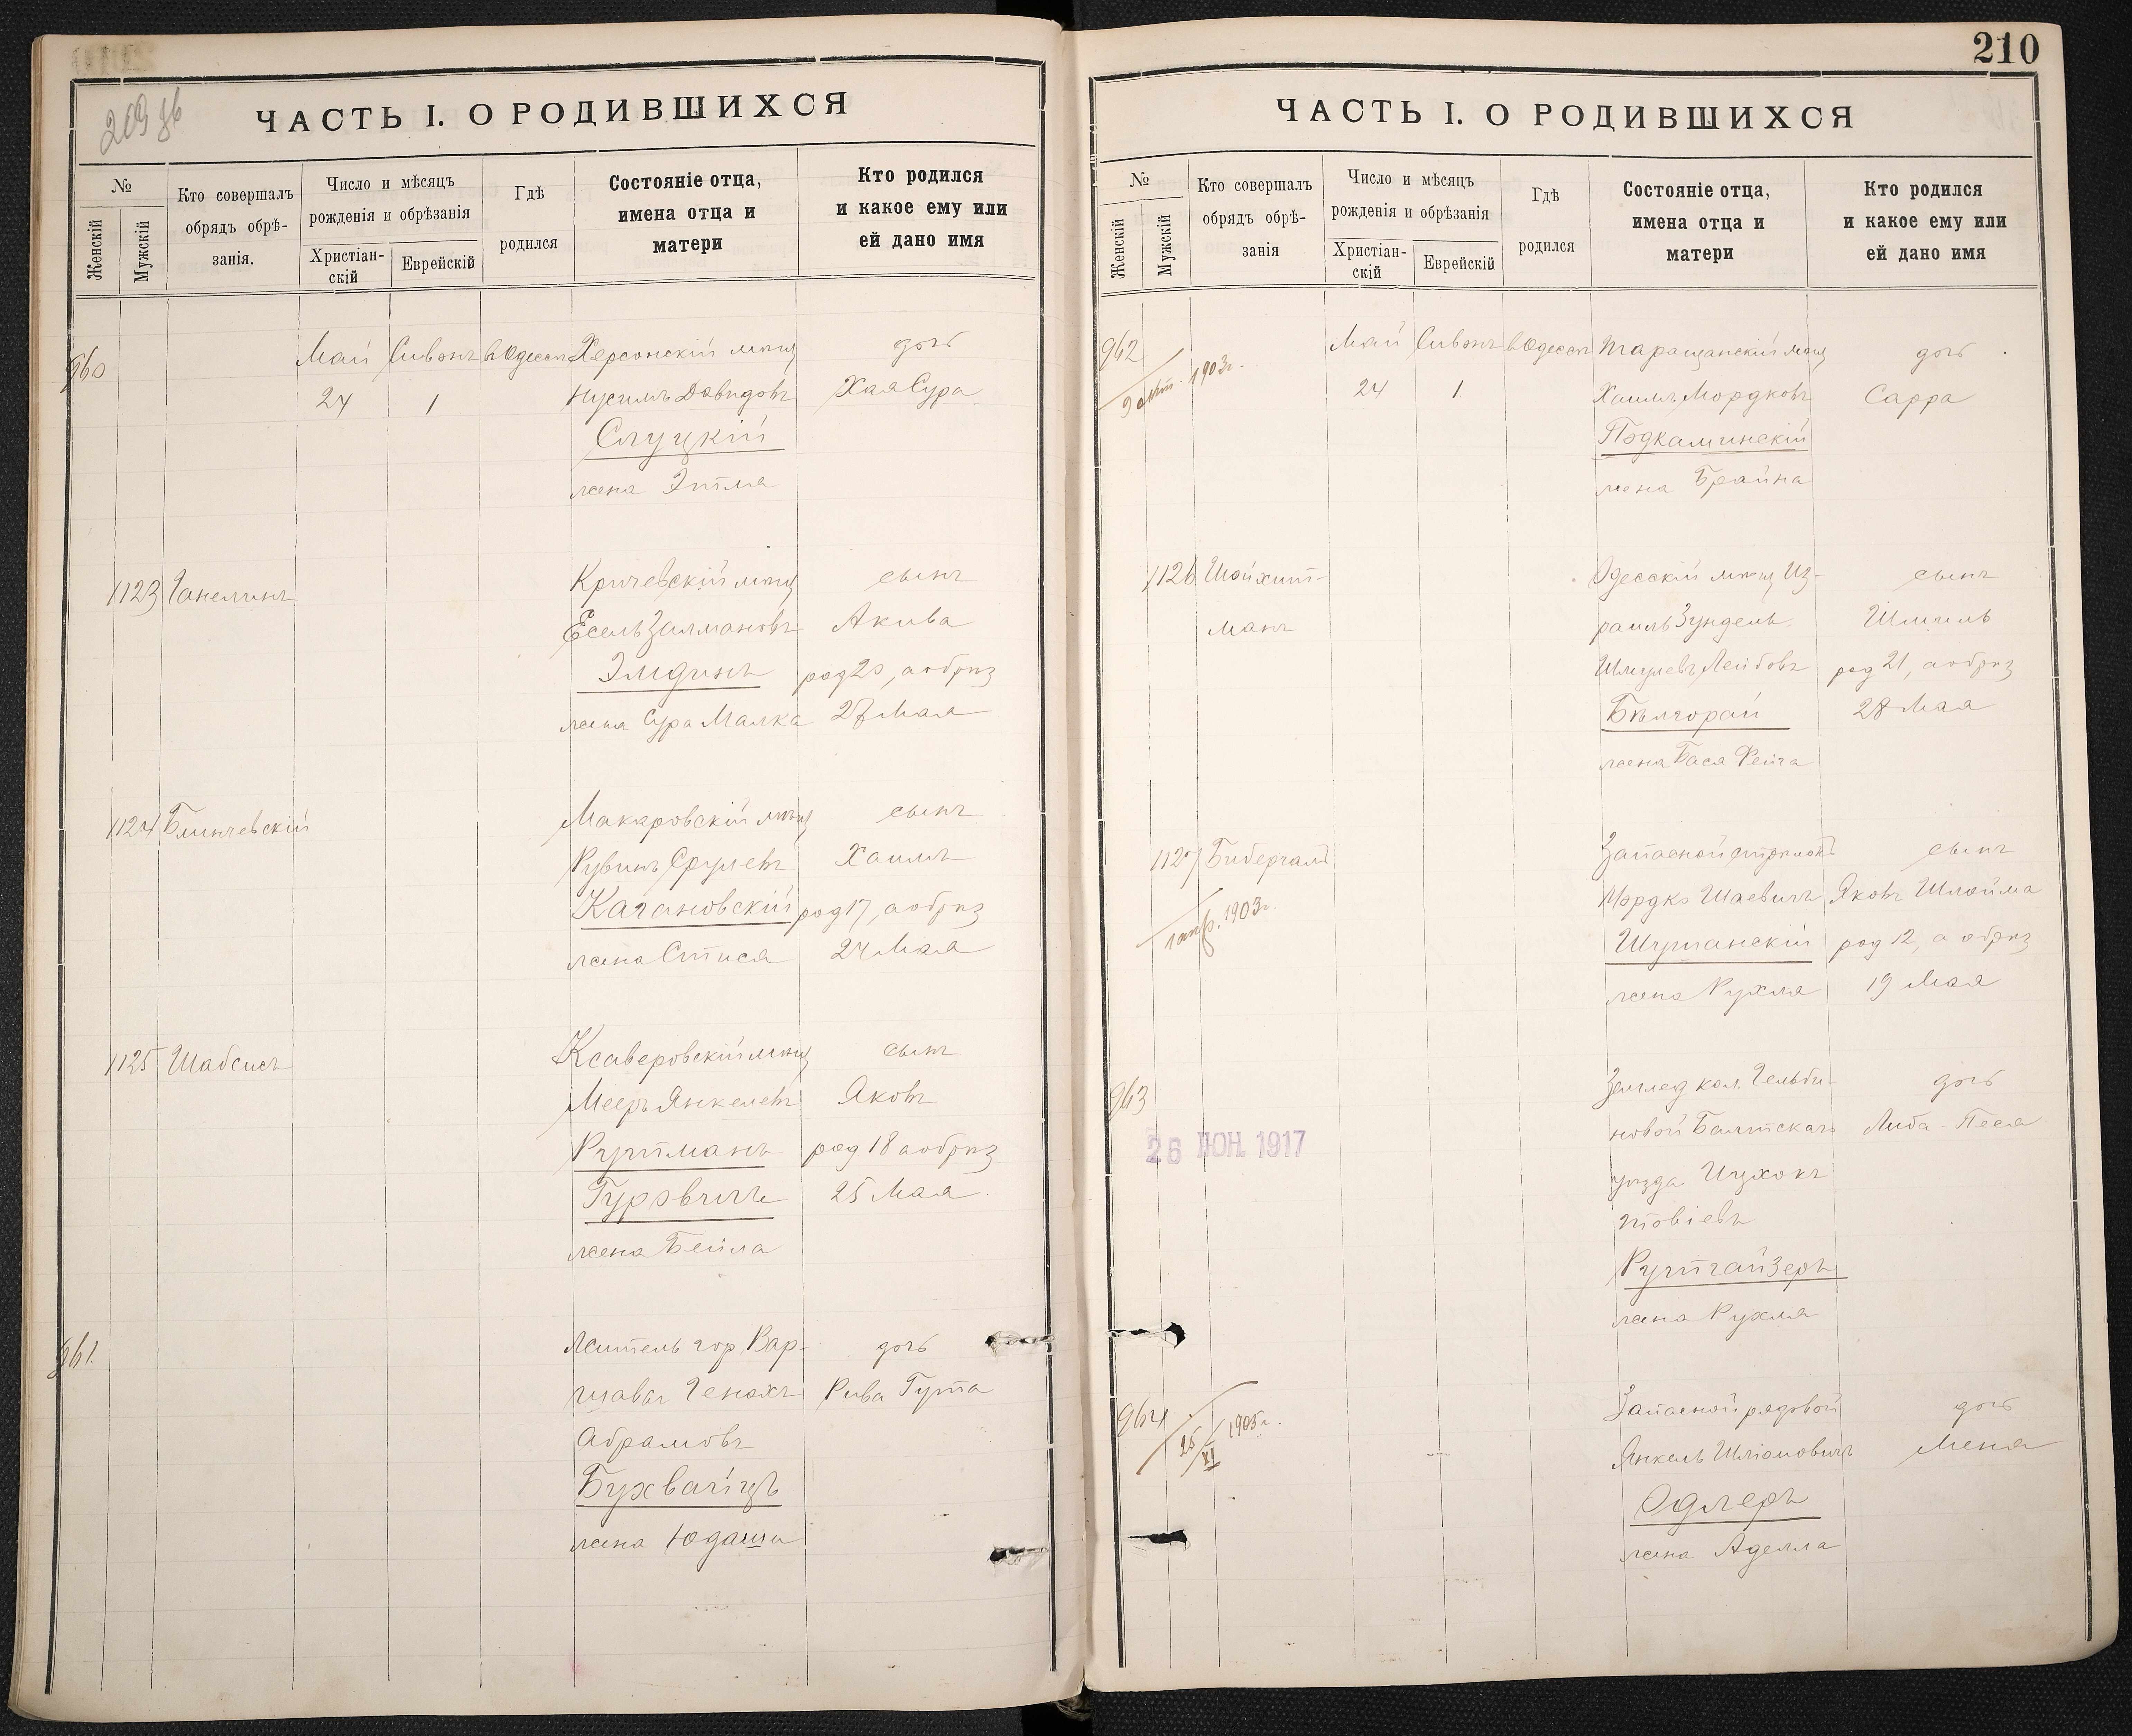 209 зв
ЧАСТЬ I. О РОДИВШИХСЯ
№
Женскій
Мужскій
Кто совершалъ
обрядъ обрѣ-
занія.
Число и мѣсяцъ
рожденія и обрѣзанія
Христіан-
скій
Еврейскій
Гдѣ
родился
Состояніе отца,
имена отца и
матери
Кто родился
и какое ему или
ей дано имя
960 Май Сивонъ в Одессѣ Херсонскій мѣщ дочь
24 1 Нусимъ Давидовъ Хая Сура
Слуцкій
жена Этля
1123 Ганелинъ Кричевскій мѣщ сынъ
Есель Залмановъ Акива
Элидинъ род 20, а обрѣз
жена Сура Малка 27 Мая
1124 Блинчевскій Макаровскій мѣщ сынъ
Рувинъ Срулевъ Хаимъ
Кагановскій род 17, а обрѣз
жена Стися 24 Мая
1125 Шабсисъ Ксаверовскій мѣщ сынъ
Мееръ Янкелевъ Яковъ
Рутманъ род 18 а обрѣз
Гуровичъ 25 Мая.
жена Бейла
961. Житель гор. Вар- дочь
шавы Генохъ Рива Гута
Абрамовъ
Бухвайцъ
жена Юдаши
210
ЧАСТЬ I. О РОДИВШИХСЯ
№
Женскій
Мужскій
Кто совершалъ
обрядъ обрѣ-
занія
Число и мѣсяцъ
рожденія и обрѣзанія
Христіан-
скій
Еврейскій
Гдѣ
родился
Состояніе отца,
имена отца и
матери
Кто родился
и какое ему или
ей дано имя
962 Май Сивонъ в Одессѣ Таращанскій мѣщ дочь
9 1903г.
24 1 Хаимъ Мордковъ Сарра
Подкаминскій
жена Брайна
1126 Шойхит- Одесскій мѣщ Из- сынъ
манъ раиль Зундель Шмиль
Шмулевъ Лейбовъ род 21, а обрѣз
Бѣлгорай 28 Мая
жена Бася Фейга
1127 Бибергалъ Запасной стрѣлокъ сынъ
1903г. Мордко Шаевичъ Яковъ Шлойма
Шушанскій род 12, а обрѣз
жена Рухля 19 Мая
963 Землед кол. Гельби- дочь
новой Балтскаго Либа-Песя
26 ІЮН. 1917
уѣзда Ицхокъ
Товіевъ
Рутгайзеръ
жена Рухля
964 Запасной рядовой дочь
25/XI 1905г. Янкель Шліомовичъ Меня
Одлеръ
жена Аделла